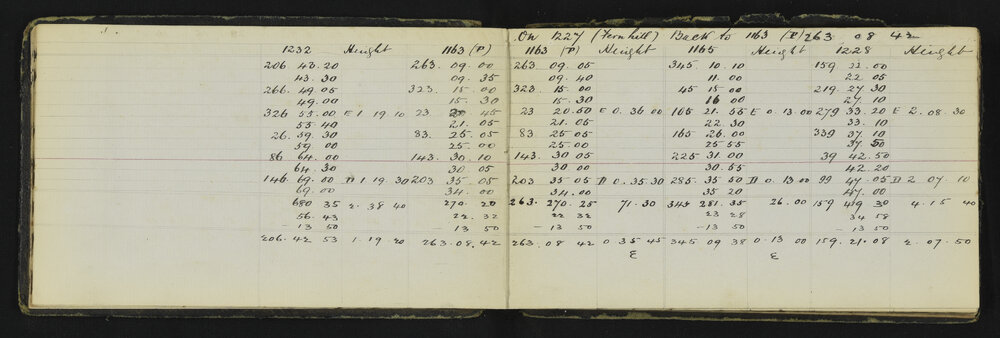 On 1227 (Fernhill) Back to 1163 (P) 263 08 42
1232 Height 1163 (P) 1163 (P) Height 1165 Height 1228 Height
206 43.20 263. 09.00 263. 09 05 345. 10.10 159 22.00
43.30 09.35 09.40 11.00 22 05
266. 49 05 323. 15.00 323. 15.00 45 15 00 219. 27 30
49.00 15.30 15.30 16 00 27.10
326 53.00 E 1 19 10 23. 45 23 20.50 E 0.36 00 105 21.55 E 0.13.00 279 33.20 E 2.08.30
53 40 21.05 21.05 22.30 33.10
26. 59.30 83. 25.05 83 25 05 165 26.00 339 37.10
59.00 25.00 25.00 25 55 37.50
86 64.00 143. 30.10 143. 30 05 225 31.00 39 42.50
64.30 30 05 30.00 30.55 42.20
146 69.00 D 1.19.30 203 35.05 203 35 05 D 0.35.30 285. 35.50 D 0.13.00 99 47.05 D 2 07.10
69.00 34.00 34.00 35 20 47.00
680 35 2.38 40 270.20 263. 270.25 71.30 345 281.35 26.00 159 419 30 4.15 40
56.43 22.32 22 32 23 28 34 58
-13 50 -13 50 -13 50 -13 50 -13 50
206.42 53 1.19.20 263.08.42 263.08 42 0 35 45 345 09 38 0.13 00 159.21.08 2.07.50
E E